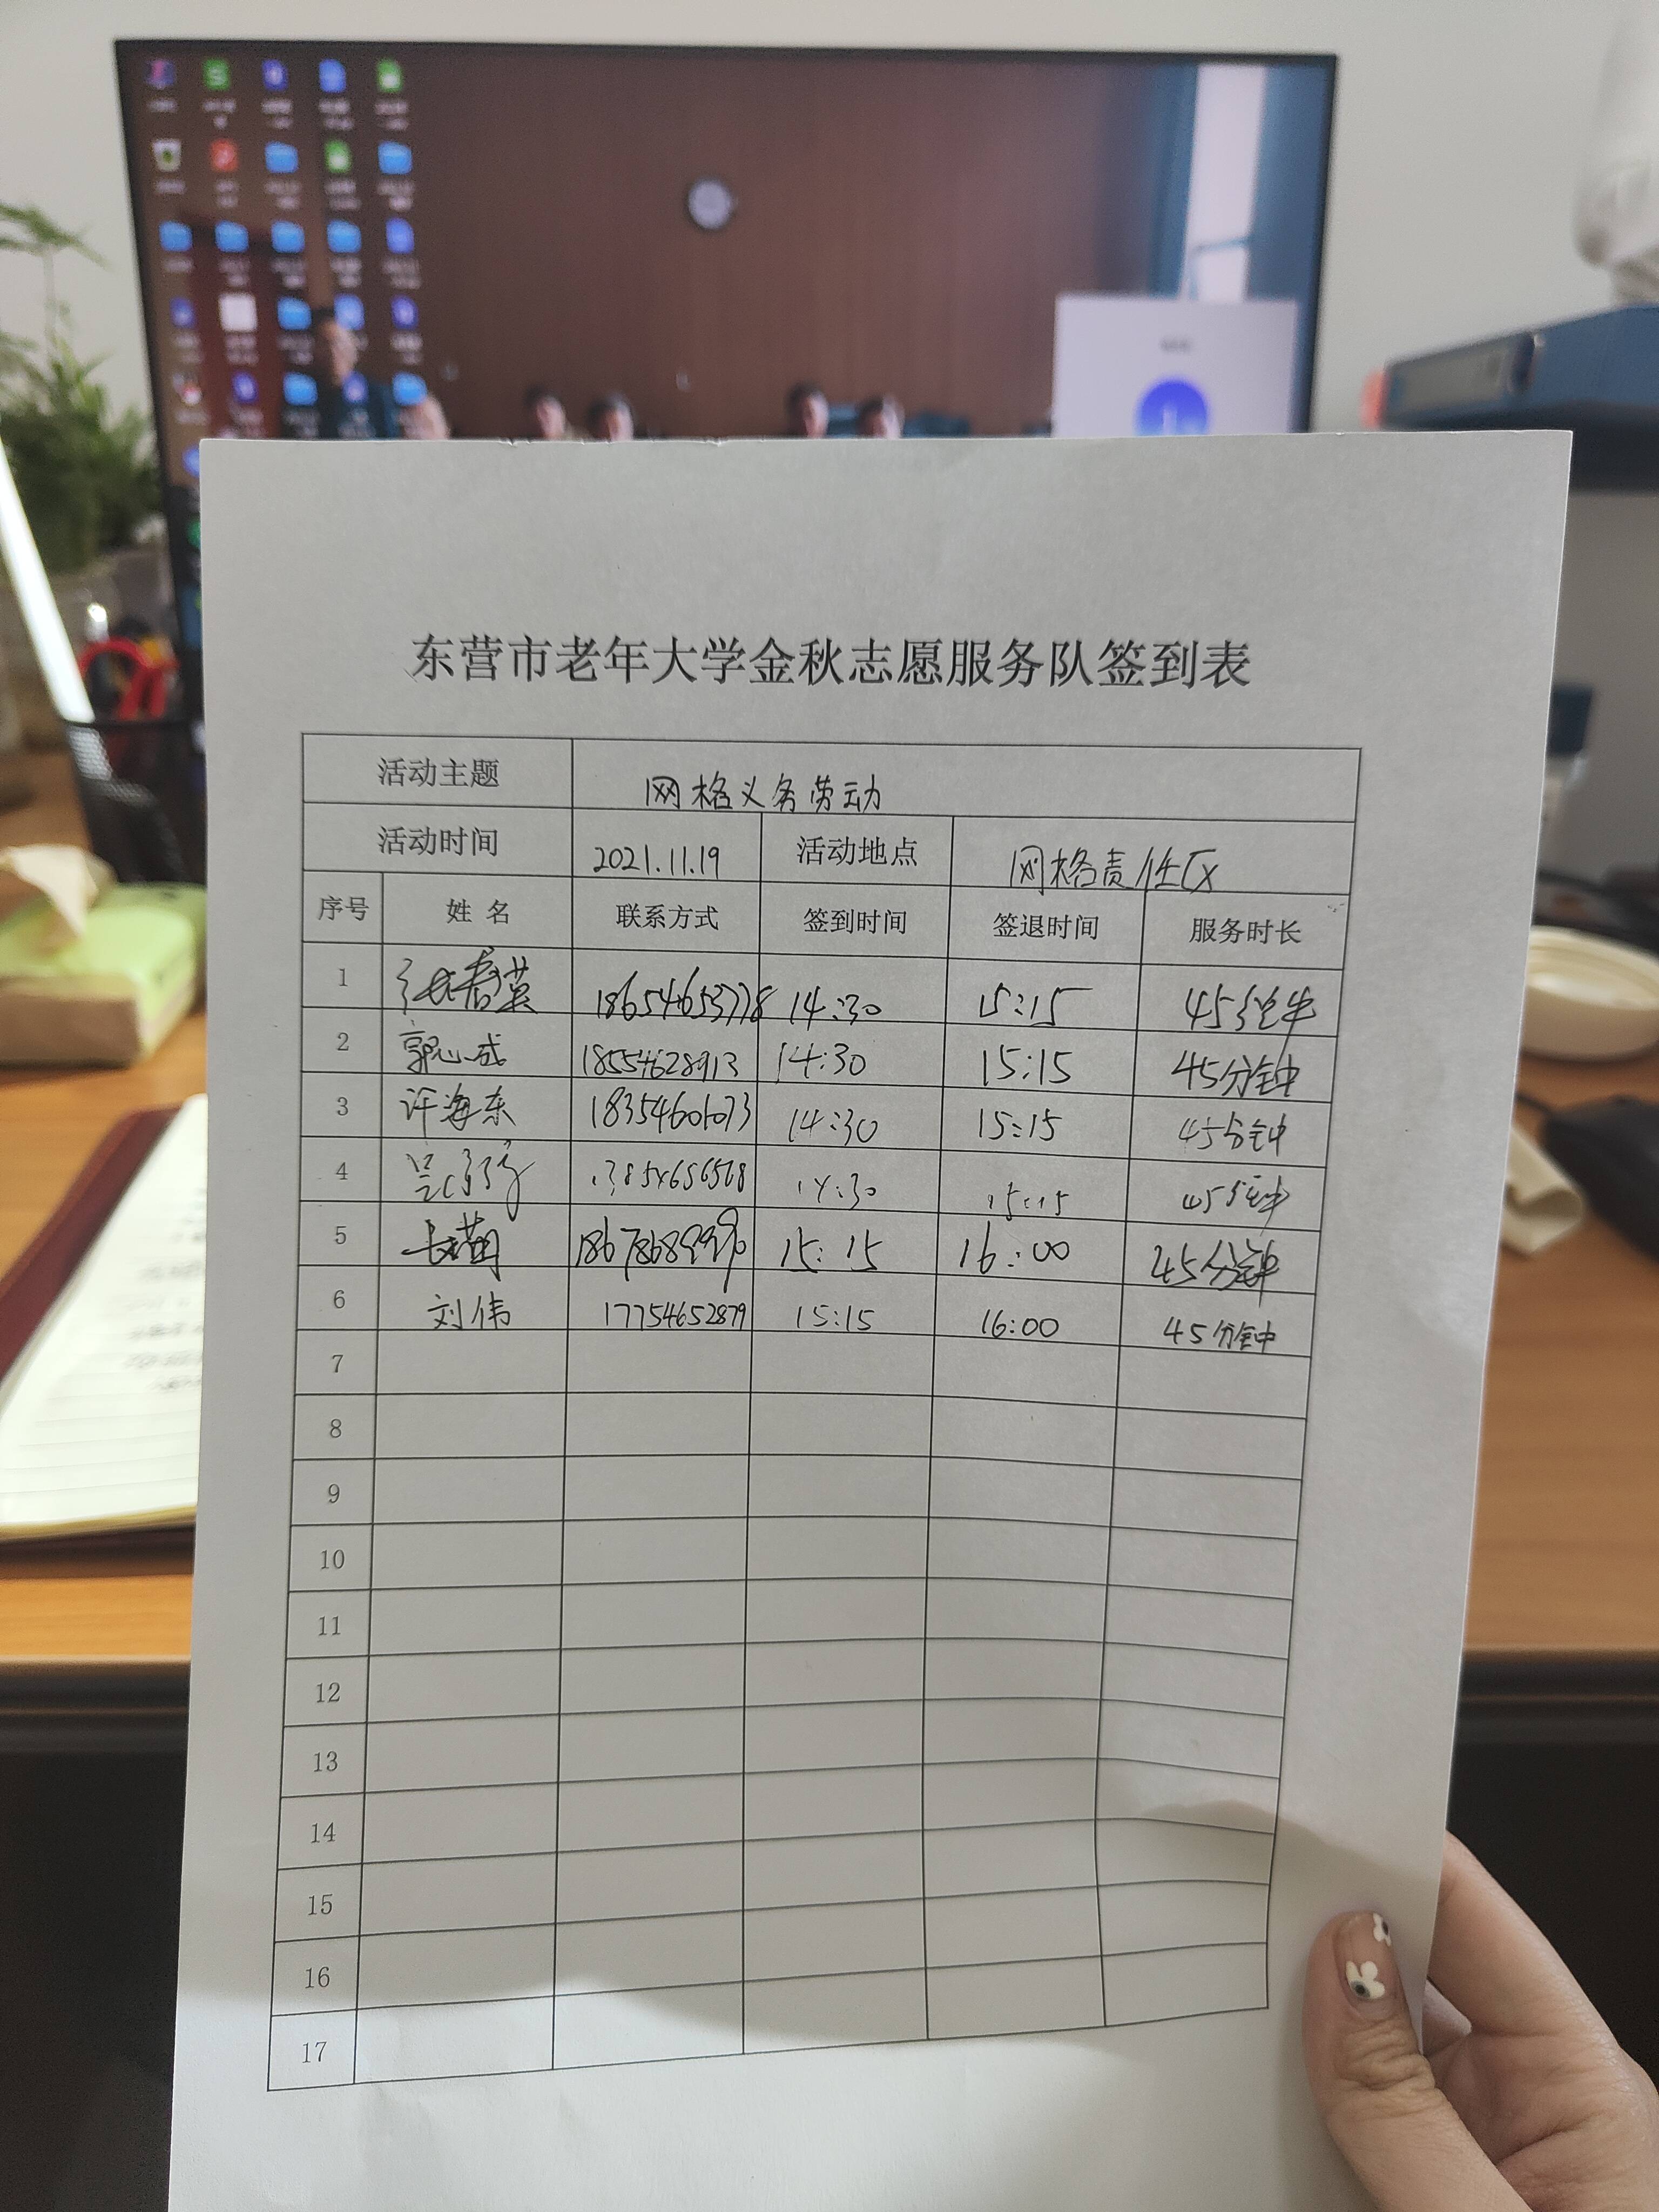 东营市老年大学金秋志愿服务队签到表
活动主题 网格义务劳动
活动时间 2021.11.19 活动地点 网格责任区
序号 姓名 联系方式 签到时间 签退时间 服务时长
1 张春英 18654653778 14:30 15:15 45分钟
2 郭心成 18554628913 14:30 15:15 45分钟
3 许海东 14:30 15:15 45分钟
4 14:30 15:15 45分钟
5 15:15 16:00 45分钟
6 刘伟 17754652879 15:15 16:00 45分钟
7
8
9
10
11
12
13
14
15
16
17